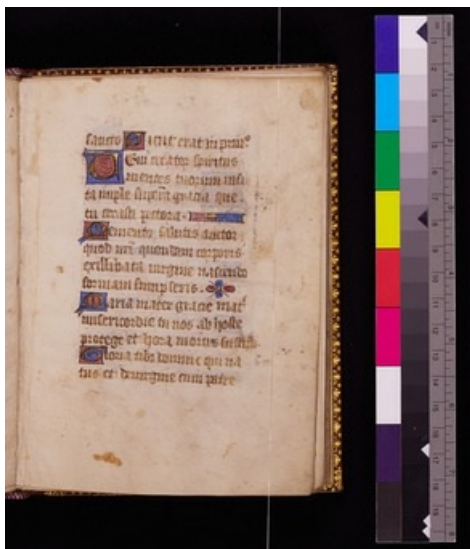 sancto Sicut erat in princ
Veni creator spiritus
mentes tuorum visi
ta imple superna gracia que
tu creasti pectora
Memento salutis auctor
quod nri quondam corporis
ex illibata uirgine nascendo
formam sumpseris
Maria mater gracie mat
misericordie tu nos ab hoste
protege et hora mortis suscipe
Gloria tibi domine qui na
tus es de uirgine cum patre